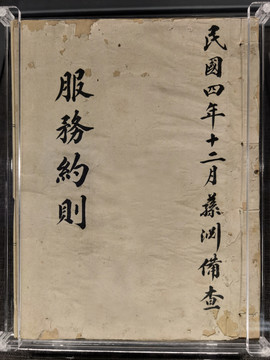 民國四年十二月蓀渕備查
服務約則